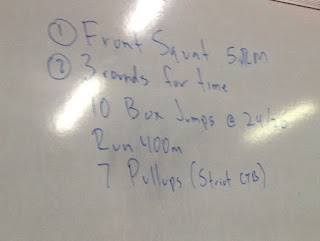 ① Front Squat 5RM
② 3 rounds for time
10 Box Jumps @ 24/20
Run 400m
7 Pullups (Strict CTB)